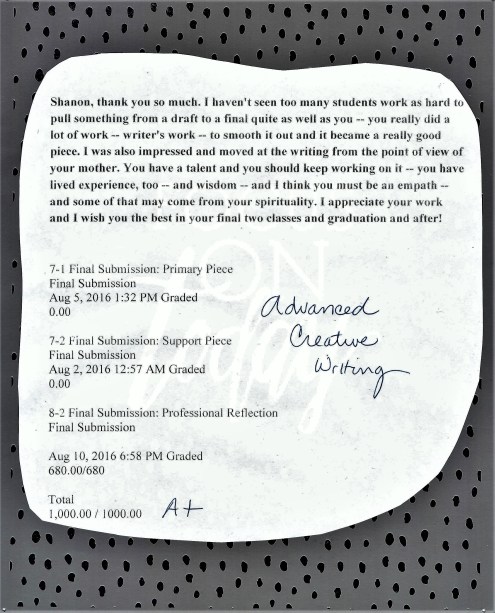 Shanon, thank you so much. I haven't seen too many students work as hard to
pull something from a draft to a final quite as well as you -- you really did a
lot of work -- writer's work -- to smooth it out and it became a really good
piece. I was also impressed and moved at the writing from the point of view of
your mother. You have a talent and you should keep working on it -- you have
lived experience, too -- and wisdom -- and I think you must be an empath --
and some of that may come from your spirituality. I appreciate your work
and I wish you the best in your final two classes and graduation and after!
7-1 Final Submission: Primary Piece
Final Submission
Aug 5, 2016 1:32 PM Graded
0.00
7-2 Final Submission: Support Piece
Final Submission
Aug 2, 2016 12:57 AM Graded
0.00
8-2 Final Submission: Professional Reflection
Final Submission
Aug 10, 2016 6:58 PM Graded
680.00/680
Total
1,000.00 / 1000.00 A+
Advanced
Creative
Writing
ON
today